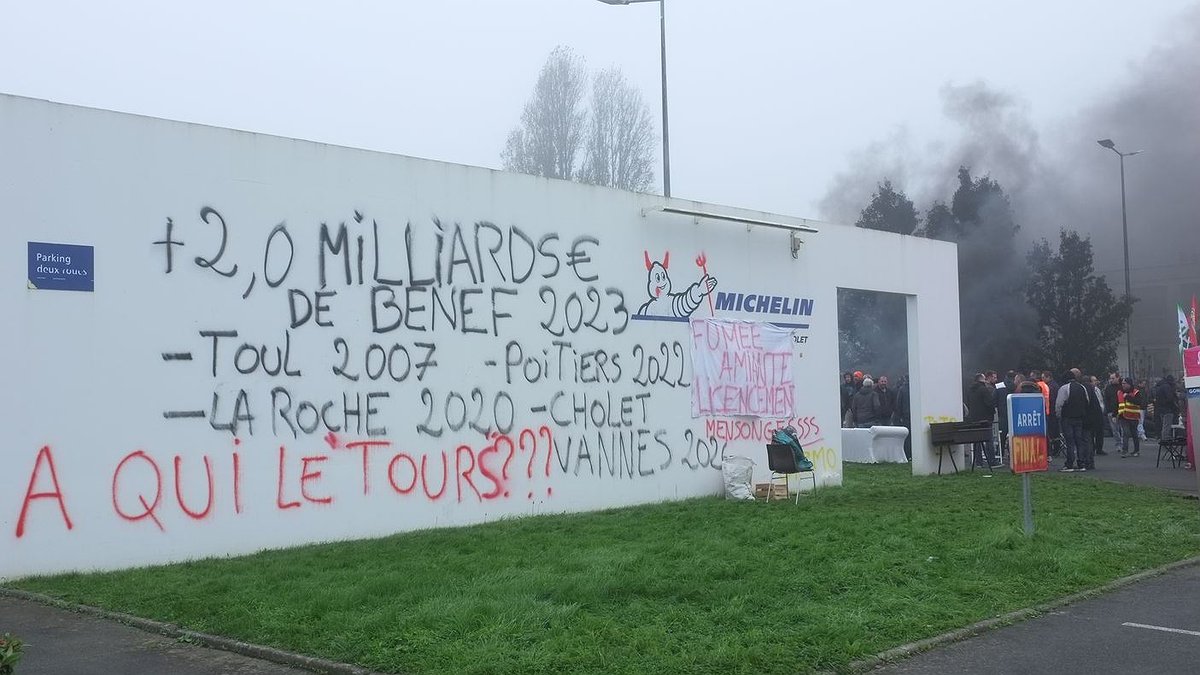 Parking
deux roues
+2,0 MiLLiARDS€
DE BENEF 2023
-TOUL 2007 -POiTiERS 2022
-LA ROCHE 2020 -CHOLET
VANNES
A QUi LE TOURS???
MICHELIN
FUMÉE
AMIANTE
LICENCIEMENT
MENSONGESSSS
ARRÊT